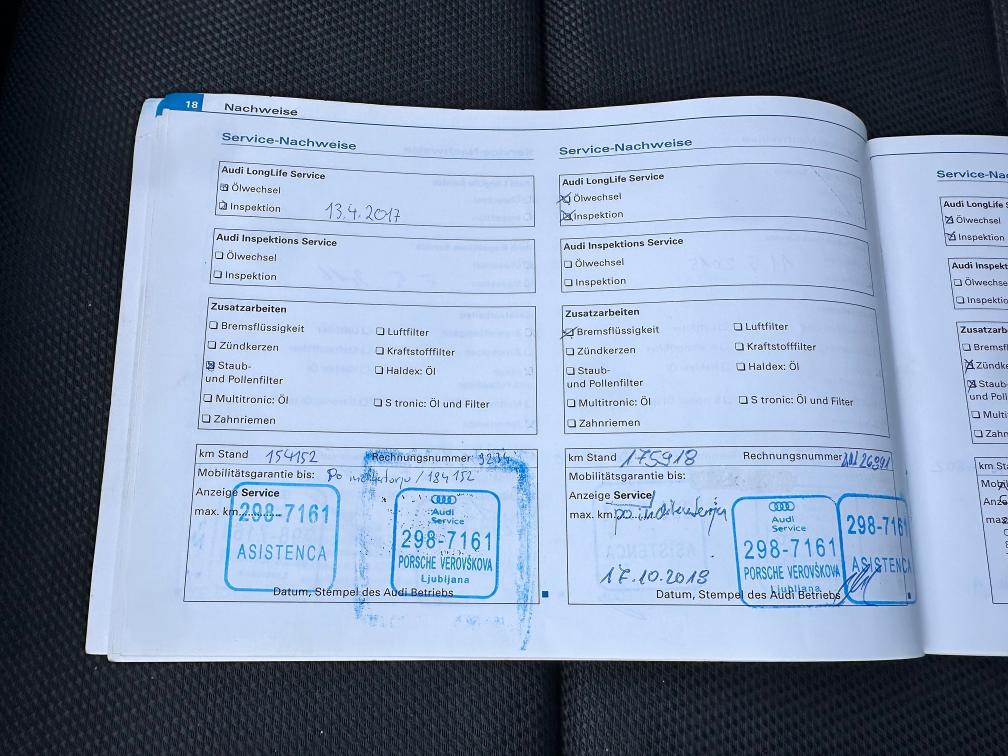 18 Nachweise
Service-Nachweise
Audi LongLife Service
Ölwechsel
Inspektion 13.4.2017
Audi Inspektions Service
Ölwechsel
Inspektion
Zusatzarbeiten
Bremsflüssigkeit Luftfilter
Zündkerzen Kraftstofffilter
Staub- Haldex: Öl
und Pollenfilter
Multitronic: Öl S tronic: Öl und Filter
Zahnriemen
km Stand 154152 Rechnungsnummer: 9234
Mobilitätsgarantie bis: Po indikatorju / 184 152
Anzeige Service
max. km
298-7161
ASISTENCA
Audi
Service
298-7161
PORSCHE VEROVŠKOVA
Ljubljana
Datum, Stempel des Audi Betriebs
Service-Nachweise
Audi LongLife Service
Ölwechsel
Inspektion
Audi Inspektions Service
Ölwechsel
Inspektion
Zusatzarbeiten
Bremsflüssigkeit Luftfilter
Zündkerzen Kraftstofffilter
Staub- Haldex: Öl
und Pollenfilter
Multitronic: Öl S tronic: Öl und Filter
Zahnriemen
km Stand 175918 Rechnungsnummer
Mobilitätsgarantie bis:
Anzeige Service
max. km po indikatorju
17.10.2018
Audi
Service
298-7161
PORSCHE VEROVŠKOVA
Ljubljana
298-7161
ASISTENCA
Datum, Stempel des Audi Betriebs
Audi LongLife
Ölwechsel
Inspektion
Audi
Inspektion